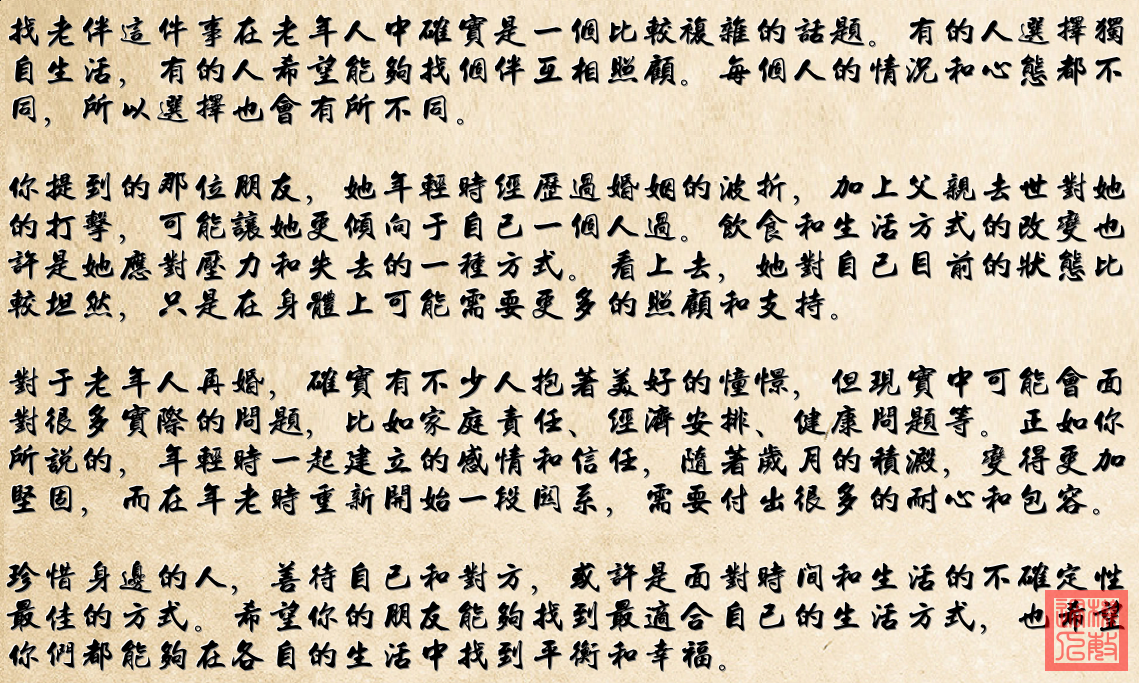 找老伴這件事在老年人中確實是一個比較複雜的話題。有的人選擇獨
自生活，有的人希望能夠找個伴互相照顧。每個人的情況和心態都不
同，所以選擇也會有所不同。
你提到的那位朋友，她年輕時經歷過婚姻的波折，加上父親去世對她
的打擊，可能讓她更傾向于自己一個人過。飲食和生活方式的改變也
許是她應對壓力和失去的一種方式。看上去，她對自己目前的狀態比
較坦然，只是在身體上可能需要更多的照顧和支持。
對于老年人再婚，確實有不少人抱著美好的憧憬，但現實中可能會面
對很多實際的問題，比如家庭責任、經濟安排、健康問題等。正如你
所說的，年輕時一起建立的感情和信任，隨著歲月的積澱，變得更加
堅固，而在年老時重新開始一段関系，需要付出很多的耐心和包容。
珍惜身邊的人，善待自己和對方，或許是面對時间和生活的不確定性
最佳的方式。希望你的朋友能夠找到最適合自己的生活方式，也希望
你們都能夠在各自的生活中找到平衡和幸福。